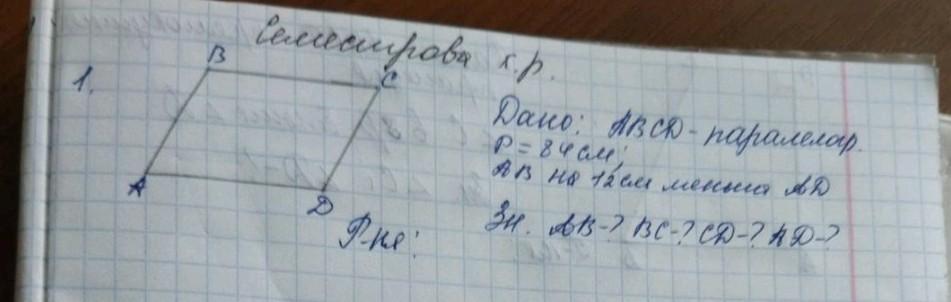 Семестрова к.р.
1.
B
C
A
D
Дано: ABCD - паралелогр.
P = 84 см;
AB на 12 см менша AD
Зн. AB-? BC-? CD-? AD-?
Р-ня: